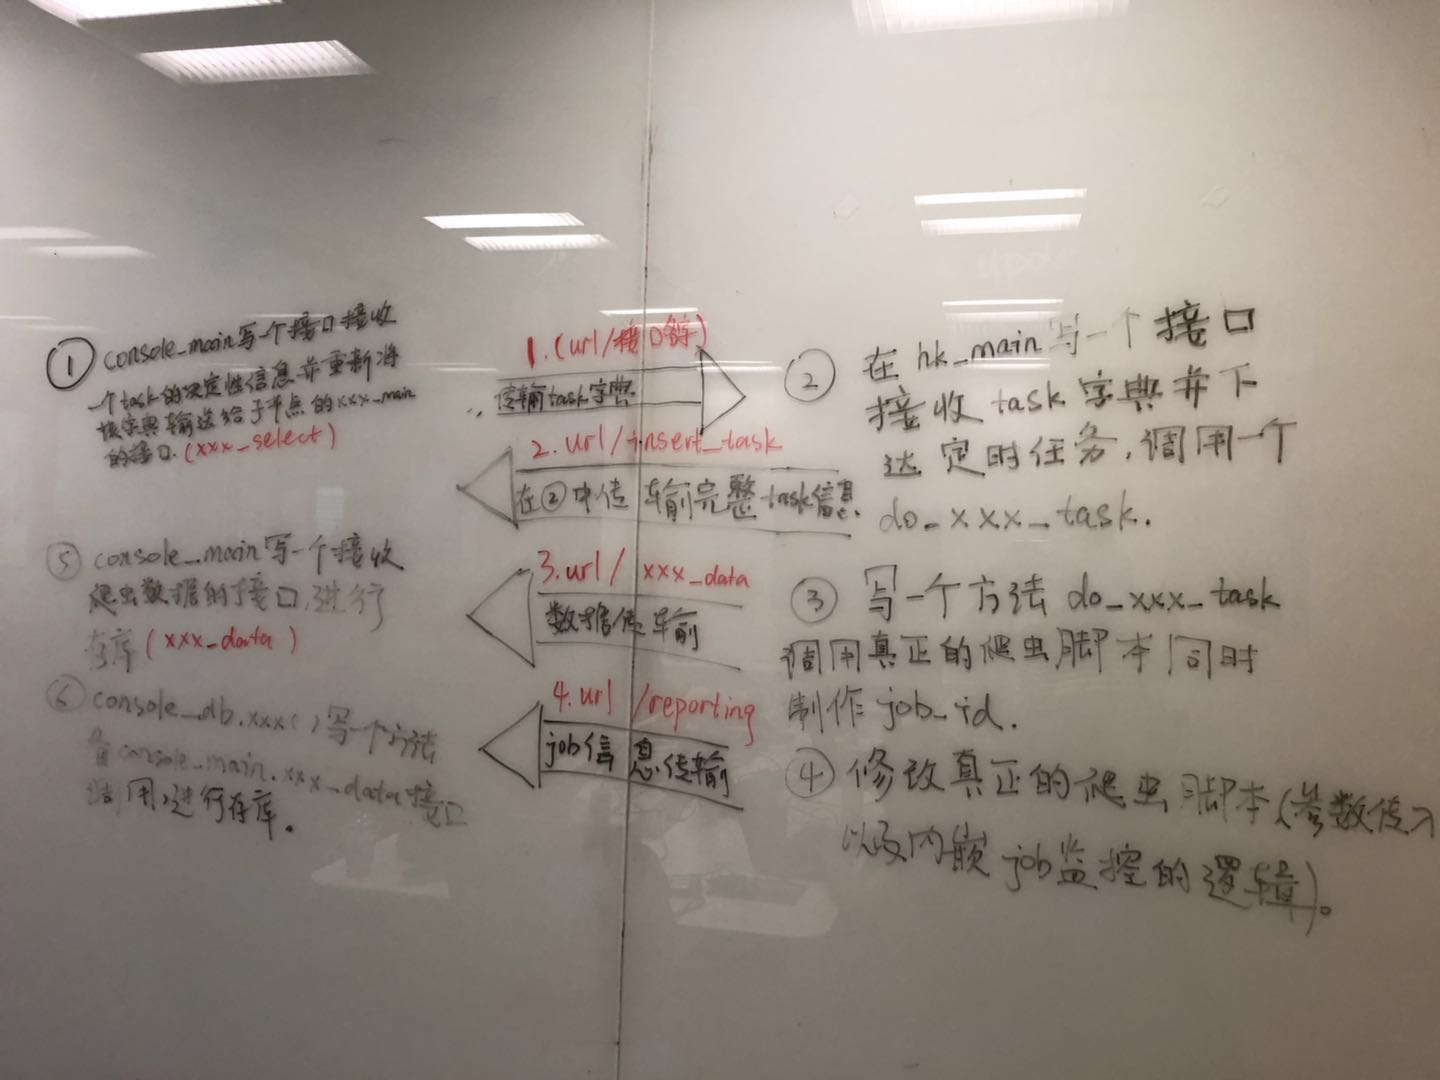 ① console_main写一个接口接收
一个task的决定性信息并重新将
该字典输送给子节点的xxx_main
的接口.(xxx_select)
⑤ console_main写一个接收
爬虫数据的接口,进行
存库(xxx_data)
⑥ console_db.xxx()写一个方法
console_main.xxx_data接口
调用,进行存库。
1.(url/接口名字)
传输task字典
2.url/insert_task
在②中传输完整task信息.
3.url/xxx_data
数据传输
4.url/reporting
job信息传输
② 在hk_main写一个接口
接收task字典并下
达定时任务,调用一个
do_xxx_task.
③ 写一个方法do_xxx_task
调用真正的爬虫脚本同时
制作job_id.
④ 修改真正的爬虫脚本(参数传入
以及内嵌job监控的逻辑)。